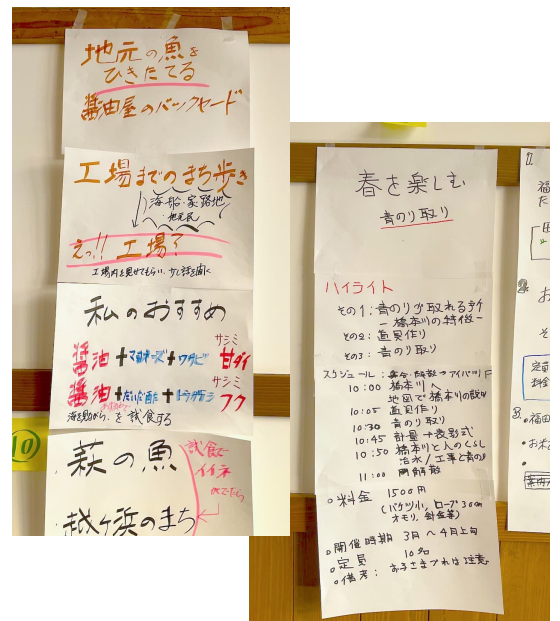 地元の魚を
ひきたてる
醤油屋のバックヤード
工場までのまち歩き
海・船・家路地
・地元民
えっ!! 工場?
工場内を見せてもらい、少し話を聞く
私のおすすめ
サシミ
醤油+マヨネーズ+ワサビ 甘ダイ
サシミ
醤油+だいだい酢+トウガラシ フク
海を見ながら を試食する
10
萩の魚
試食で
イイネ
がでたら
越ヶ浜のまち
春を楽しむ
青のり取り
ハイライト
その1:青のりが取れる
-橋本川の特徴-
その2:道具作り
その3:青のり取り
スケジュール:
10:00 橋本川へ
地図で橋本川の説明
10:05 道具作り
10:30 青のり取り
10:45 計量→表彰式
10:50 橋本川と人のくらし
治水/工事と青のり
11:00 解散
○料金 1500円
(バケツ小、ロープ30cm
オモリ、針金等)
○開催時期 3月〜4月上旬
○定員 10名
○備考:お子さまづれは注意
1.
福
た
2.
お
そ
定員
料金
3.
・福田
・お米